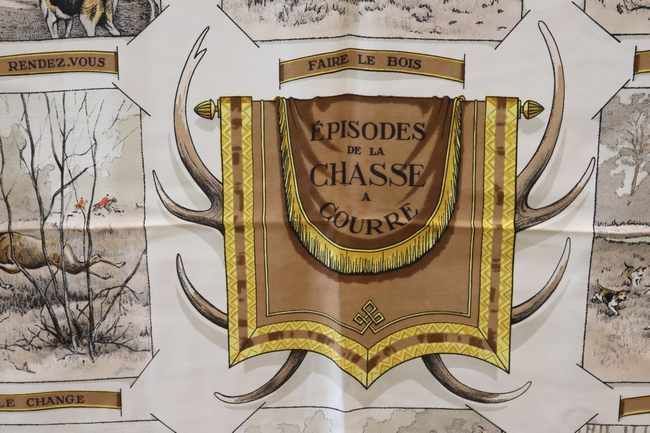 RENDEZ.VOUS
FAIRE LE BOIS
ÉPISODES
DE LA
CHASSE
A
COURRE
LE CHANGE